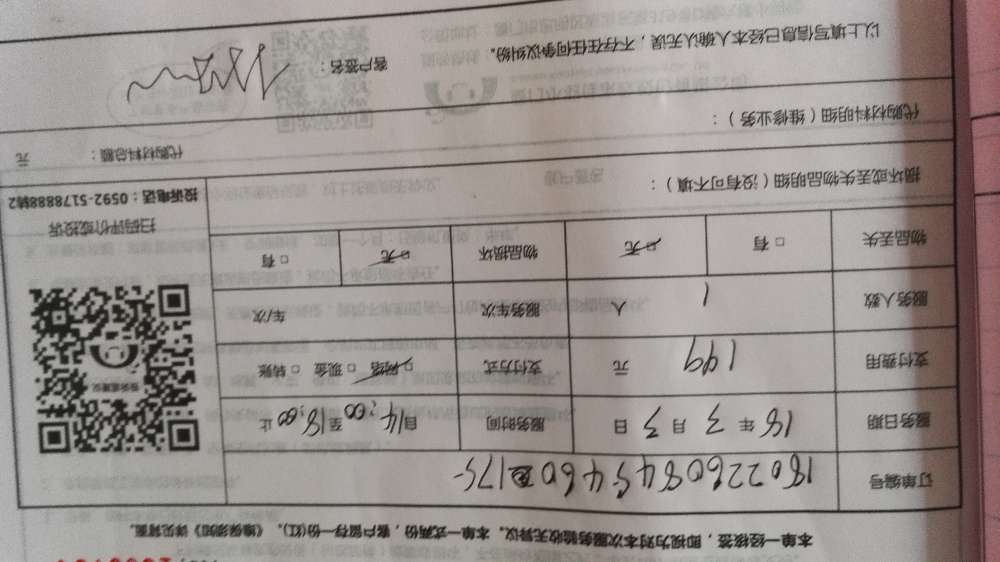 本单一经核签，即视为对本次服务验收无异议。本单一式两份，客户留存一份(红)。《维保须知》详见背面。
订单编号 180226084546 175
服务日期 18 年 3 月 3 日 服务时间 自14:00 至18:00 止
支付费用 199 元 支付方式 □ 网络 □ 现金 □ 转账
服务人数 1 人 服务车次 车/次
物品丢失 □ 有 □ 无 物品损坏 □ 无 □ 有
扫码评价或投诉
投诉电话：0592-5178888转2
损坏或丢失物品明细（没有可不填）：
代购材料明细（维修业务）：
代购材料总额： 元
以上填写信息已经本人确认无误，不存在任何争议纠纷。
客户签名：